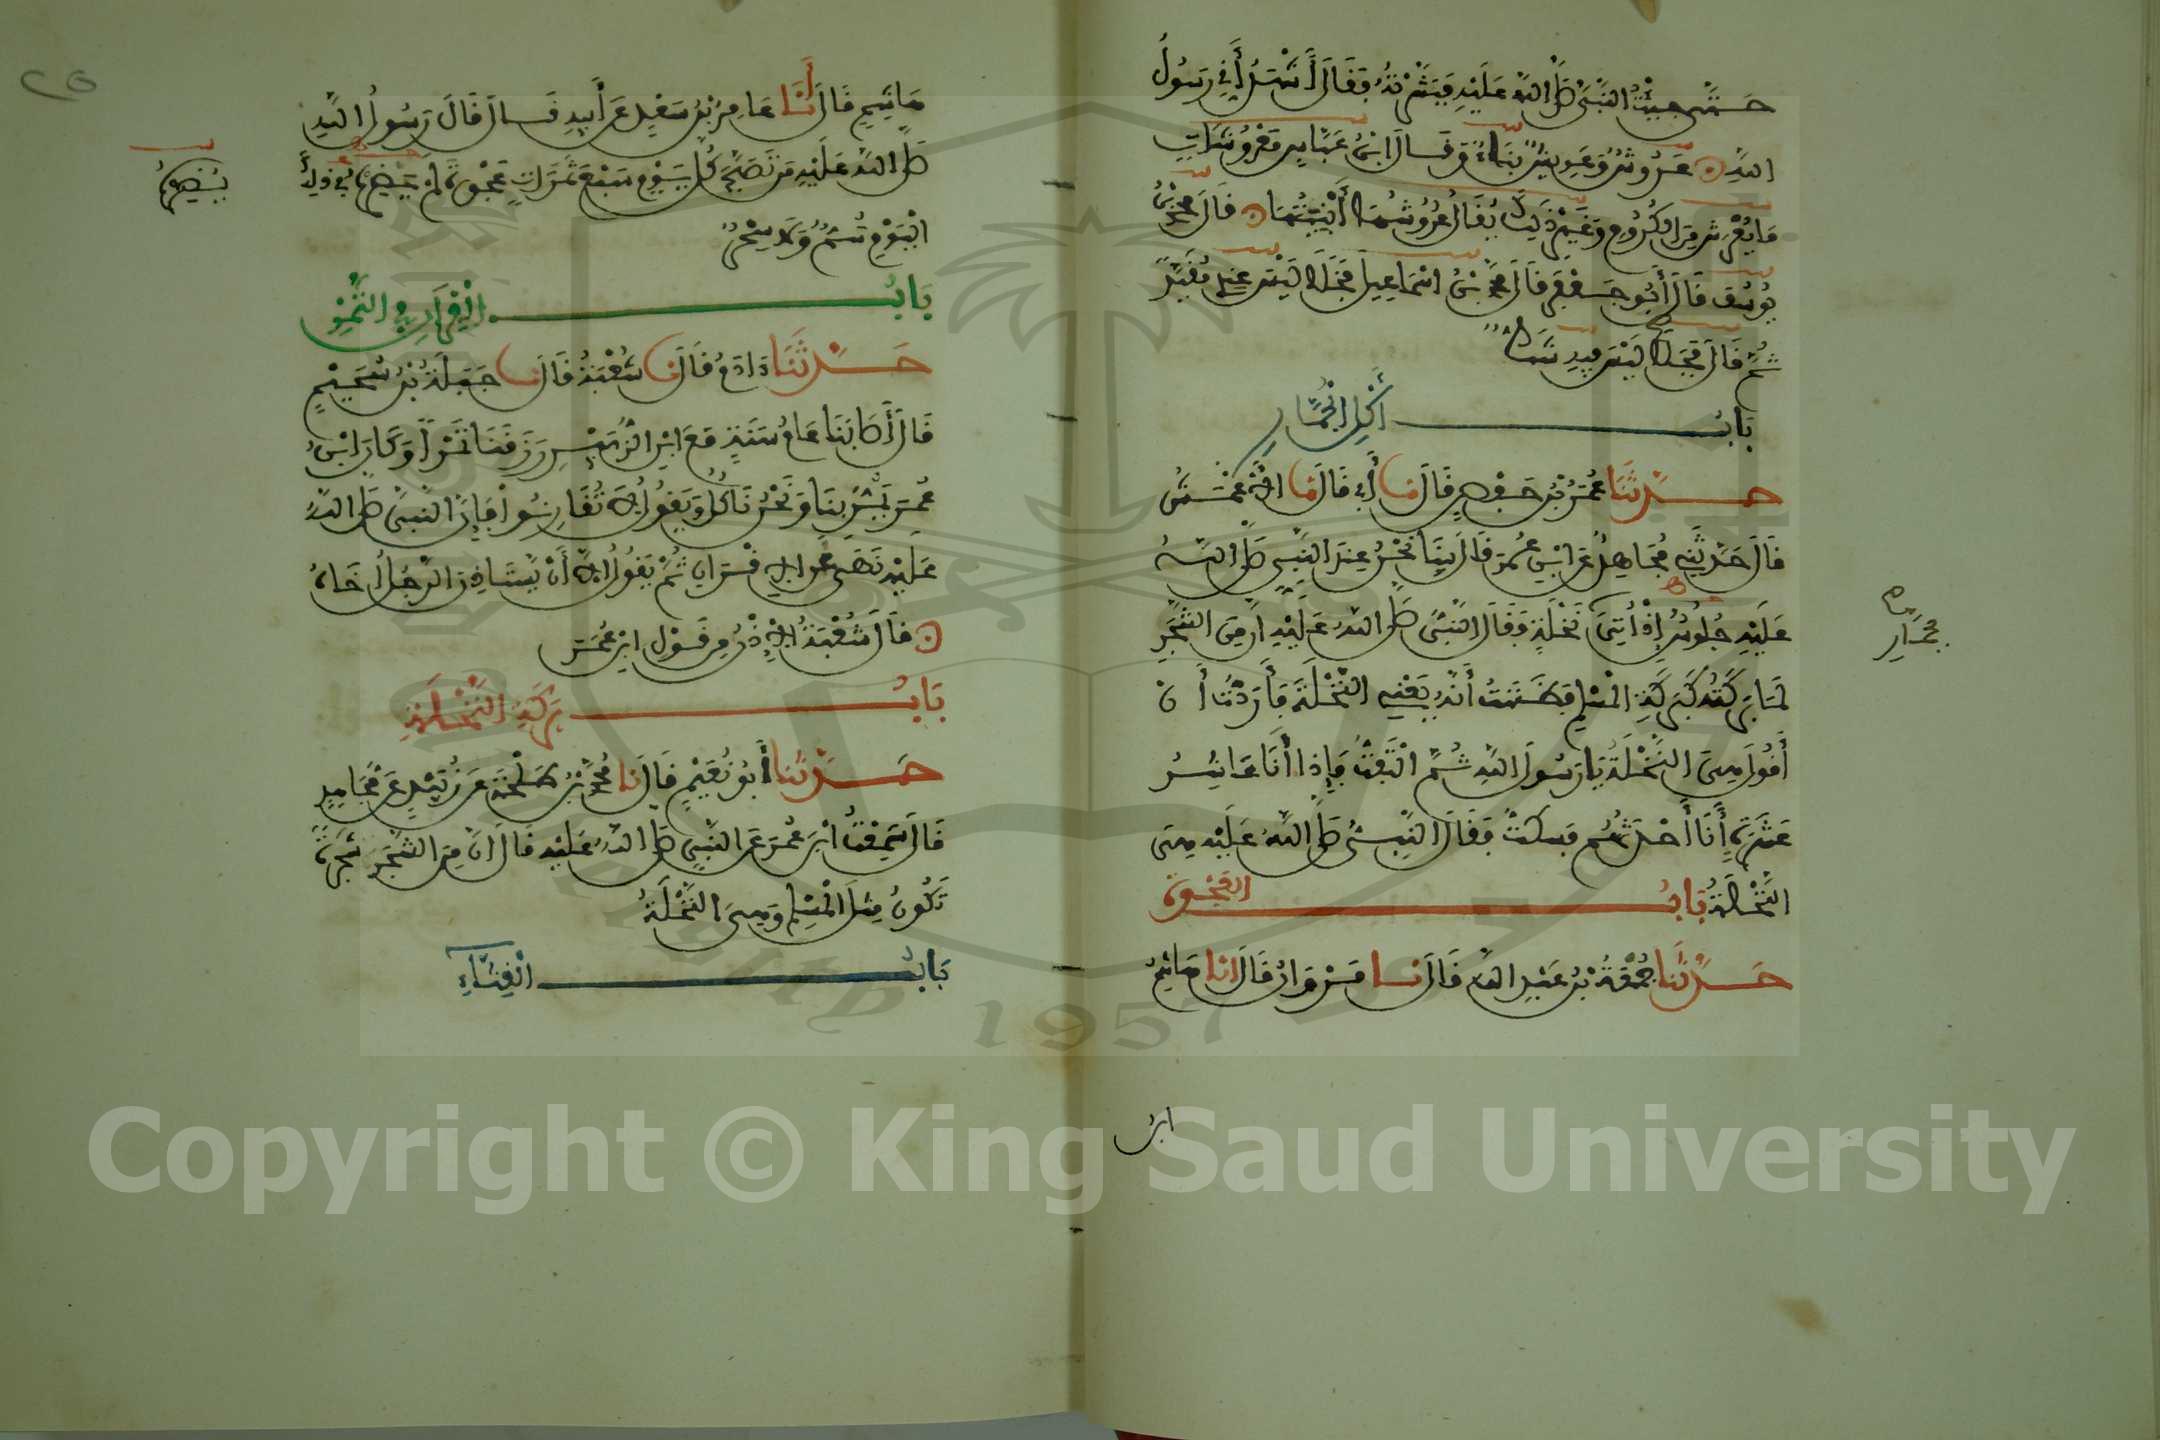 حَتَّى جِئْتُ النَّبِيَّ صَلَّى اللهُ عَلَيْهِ فَبَشَّرْتُهُ فَقَالَ أَشْهَدُ أَنِّي رَسُولُ
اللهِ عُرُوشٌ وَعَرِيشٌ بِنَاءٌ وَقَالَ ابْنُ عَبَّاسٍ مَعْرُوشَاتٍ
مَا يُعَرَّشُ مِنَ الْكُرُومِ وَغَيْرِ ذَلِكَ يُقَالُ عُرُوشُهَا أَبْنِيَتُهَا قَالَ مُحَمَّدُ بْنُ
يُوسُفَ قَالَ أَبُو جَعْفَرٍ قَالَ مُحَمَّدُ بْنُ إسْمَاعِيلَ فَجَلَا لَيْسَ عِنْدِي مُقَيَّدًا
ثُمَّ قَالَ فَجَلَا لَيْسَ فِيهِ شَكٌّ
بَابُ أَكْلِ الْجُمَّارِ
حَدَّثَنَا عُمَرُ بْنُ حَفْصٍ قَالَ نا أَبِي قَالَ نا الْأَعْمَشُ
قَالَ حَدَّثَنِي مُجَاهِدٌ عَنِ ابْنِ عُمَرَ قَالَ بَيْنَا نَحْنُ عِنْدَ النَّبِيِّ صَلَّى اللهُ
عَلَيْهِ جُلُوسٌ إِذْ أُتِيَ نَخْلَةٍ فَقَالَ النَّبِيُّ صَلَّى اللهُ عَلَيْهِ إنَّ مِنَ الشَّجَرِ
لَمَا بَرَكَتُهُ كَبَرَكَةِ الْمُسْلِمِ فَظَنَنْتُ أَنَّهُ يَعْنِي النَّخْلَةَ فَأَرَدْتُ أَنْ
أَقُولَ هِيَ النَّخْلَةُ يَا رَسُولَ اللهِ ثُمَّ الْتَفَتُّ فَإِذَا أَنَا عَاشِرُ
عَشَرَةٍ أَنَا أَحْدَثُهُمْ فَسَكَتُّ فَقَالَ النَّبِيُّ صَلَّى اللهُ عَلَيْهِ هِيَ
النَّخْلَةُ بَابُ الْعَجْوَةِ
حَدَّثَنَا جُمْعَةُ بْنُ عَبْدِ اللهِ قَالَ نا مَرْوَانُ قَالَ أنا هَاشِمُ
جُمَّارِ
ابْنُ
هَاشِمٍ قَالَ أَنَا عَامِرُ بْنُ سَعْدٍ عَنْ أَبِيهِ قَالَ قَالَ رَسُولُ اللهِ
صَلَّى اللهُ عَلَيْهِ مَنْ تَصَبَّحَ كُلَّ يَوْمٍ سَبْعَ تَمَرَاتٍ عَجْوَةً لَمْ يَضُرَّهُ فِي ذَلِكَ
يَضُرُّهُ
الْيَوْمِ سُمٌّ وَلَا سِحْرٌ
بَابُ الْقِرَانِ فِي التَّمْرِ
حَدَّثَنَا آدَمُ قَالَ نا شُعْبَةُ قَالَ نا جَبَلَةُ بْنُ سُحَيْمٍ
قَالَ أَصَابَنَا عَامُ سَنَةٍ مَعَ ابْنِ الزُّبَيْرِ رَزَقَنَا تَمْرًا وَكَانَ ابْنُ
عُمَرَ يَمُرُّ بِنَا وَنَحْنُ نَأْكُلُ وَيَقُولُ لَا تُقَارِنُوا فَإِنَّ النَّبِيَّ صَلَّى اللهُ
عَلَيْهِ نَهَى عَنِ الْإِقْرَانِ ثُمَّ يَقُولُ إِلَّا أَنْ يَسْتَأْذِنَ الرَّجُلُ أَخَاهُ
قَالَ شُعْبَةُ الْإِذْنُ مِنْ قَوْلِ ابْنِ عُمَرَ
بَابُ بَرَكَةِ النَّخْلَةِ
حَدَّثَنَا أَبُو نُعَيْمٍ قَالَ نا مُحَمَّدُ بْنُ طَلْحَةَ عَنْ زُبَيْدٍ عَنْ مُجَاهِدٍ
قَالَ سَمِعْتُ ابْنَ عُمَرَ عَنِ النَّبِيِّ صَلَّى اللهُ عَلَيْهِ قَالَ إنَّ مِنَ الشَّجَرِ شَجَرَةً
تَكُونُ مِثْلَ الْمُسْلِمِ وَهِيَ النَّخْلَةُ
بَابُ الْقِثَّاءِ
Copyright © King Saud University
1957